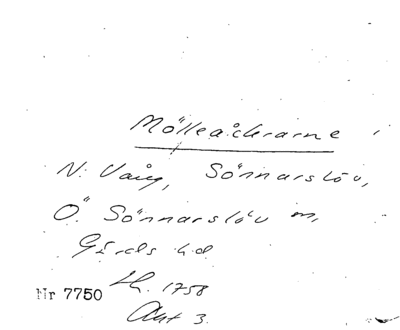 Mölleåkrarne
N: Vång, Sönnarslöv,
Ö Sönnarslöv m,
Gärds hd
Sk. 1758
Nr 7750
Akt 3.